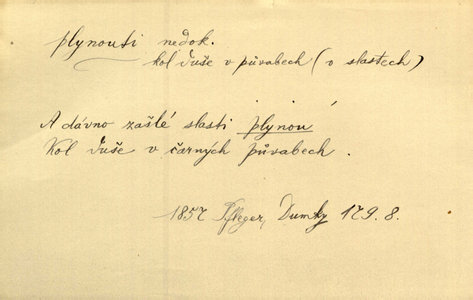 plynouti nedok.
kol duše v půvabech (o slastech)
A dávno zašlé slasti plynou
Kol duše v čarných půvabech.
1857 Pfleger, Dumky 179. 8.